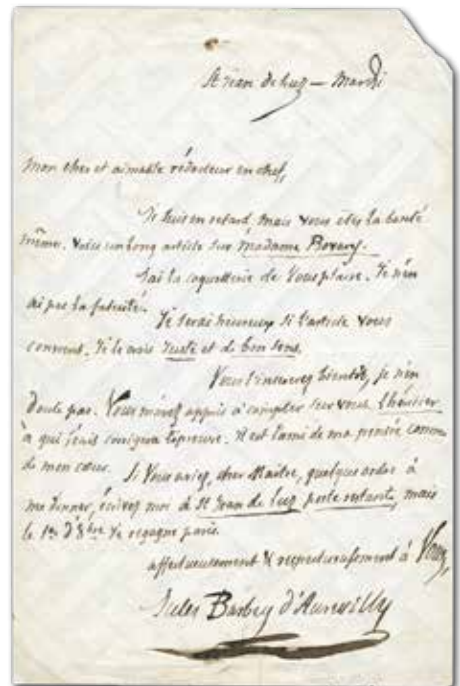 St Jean de Luz — Mardi
Mon cher et aimable rédacteur en chef,
Je suis en retard, mais vous êtes la bonté
même. Voici un long article sur Madame Bovary.
J'ai la coquetterie de vous plaire. Je n'en
ai pas la fatuité.
Je serai heureux si l'article vous
convient. Je le crois juste et de bon sens.
Vous l'insérerez bientôt, je n'en
doute pas. Vous m'avez appris à compter sur vous.
à qui j'écris corrigera l'épreuve. Il est l'ami de ma pensée comme
de mon cœur. Si vous aviez, cher Maître, quelque ordre à
me donner, écrivez moi à St Jean de Luz poste restante, mais
le 1er d'8bre je regagne Paris.
affectueusement & respectueusement à Vous,
Jules Barbey d'Aurevilly